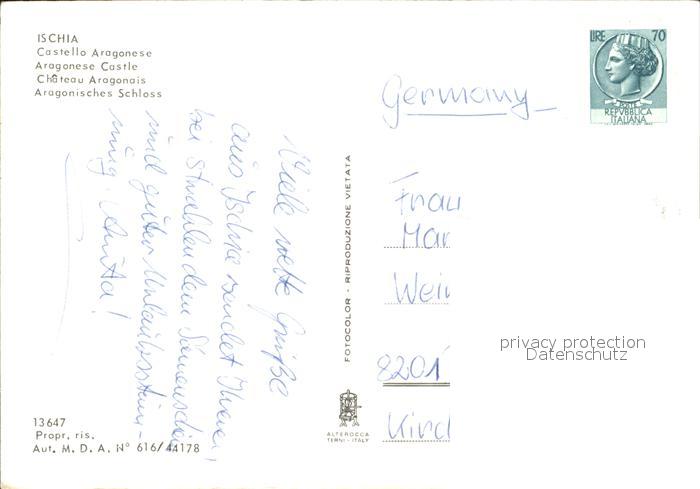 ISCHIA
Castello Aragonese
Aragonese Castle
Château Aragonais
Aragonisches Schloss
Viele nette Grüße
aus Ischia sendet Ihnen,
bei strahlendem Sonnenschein
und guter Urlaubsstim-
mung Anita!
13647
Propr. ris.
Aut. M. D. A. N° 616/44178
FOTOCOLOR - RIPRODUZIONE VIETATA
ALTEROCCA
TERNI - ITALY
LIRE 70
POSTE
REPVBBLICA
ITALIANA
Germany
Frau
Mar
Wei
8201
Kird
privacy protection
Datenschutz